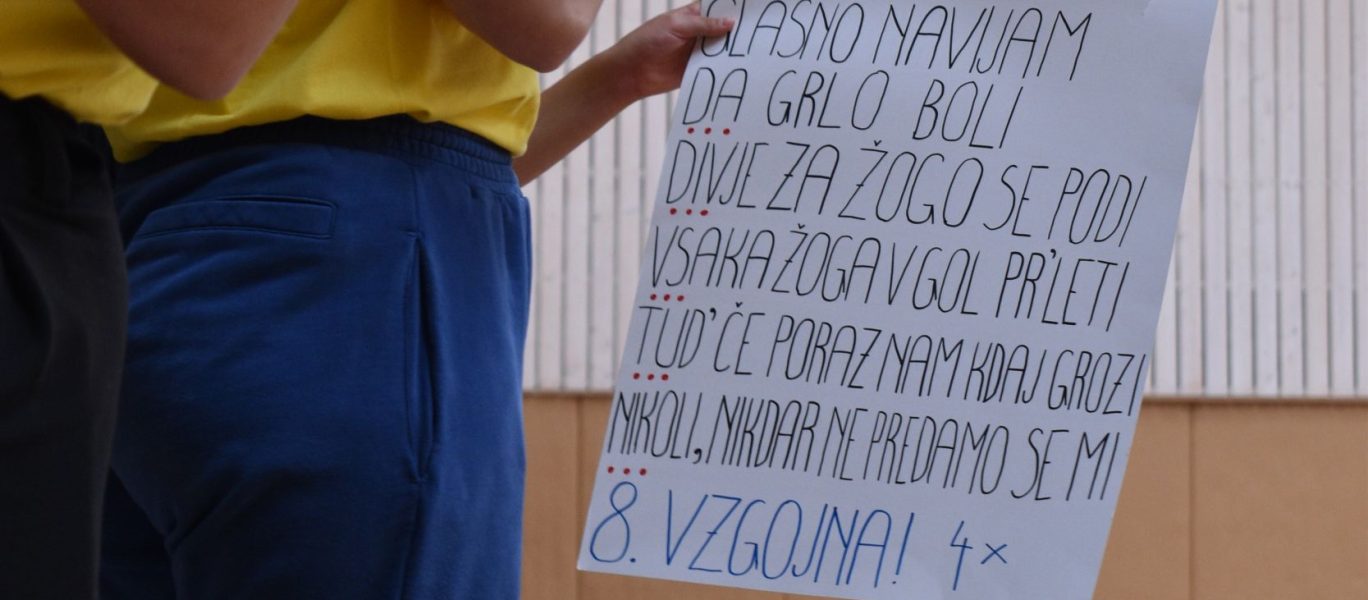 GLASNO NAVIJAM
DA GRLO BOLI
DIVJE ZA ŽOGO SE PODI
VSAKA ŽOGA V GOL PR'LETI
TUD' ČE PORAZ NAM KDAJ GROZI
NIKOLI, NIKDAR NE PREDAMO SE MI
8. VZGOJNA! 4×